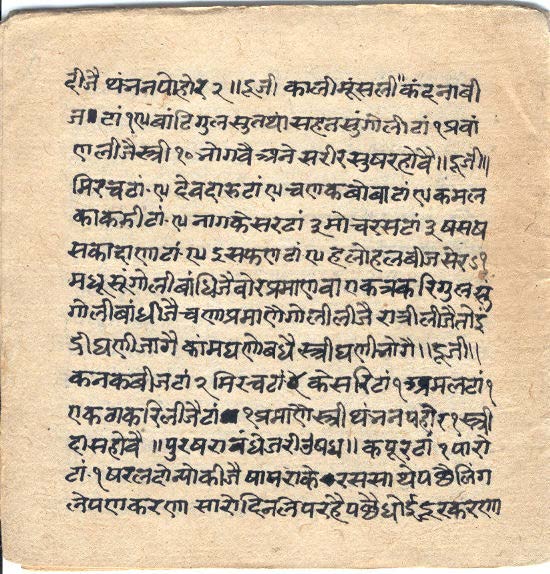 दीजै थंनन पोहोर २ ॥ दूजी कालीमूंसली कंदनाबी
ज टां १ ५ वांटि गुल सुतथा सहत सुं गोली टां १ प्रवां
ण लीजै स्त्री १० नोगवै अने सरीर सुष रहोवै ॥ दूजी ॥
मिरच टां ५ देवदारु टां ५ चणकबोबा टां ५ कमल
काकडी टां ५ नागकेसर टां ३ मोचरस टां ३ षसष
सकादाणा टां ५ इसफण टां ५ हलोहलबीज सेर ऽ१
मधू सूं गोली बांधिजै बोर प्रमाण वा एकत्र करि गुल सुं
गोली बांधीजै चणा प्रमाणे गोली लीजै रात्री लीजै तो इं
द्री घणी जागै कांम घणो बधै स्त्री घणी नोगै ॥ दूजी ॥
कनकबीज टां २ मिरच टां केसरि टां १ अमल टां १
एकठा करि लीजै टां १ प्रमाणे स्त्री थंनन पहोर १ स्त्री
दास होवै ॥ पुरषरा बंधेजरी औषध ॥ कपूर टां १ पारो
टां १ षरल दोन्यो कीजै पानराके रस साथे पछै लिंग
लेपण करणा सारो दिन लेप रहै पछै धोई दूर करणा